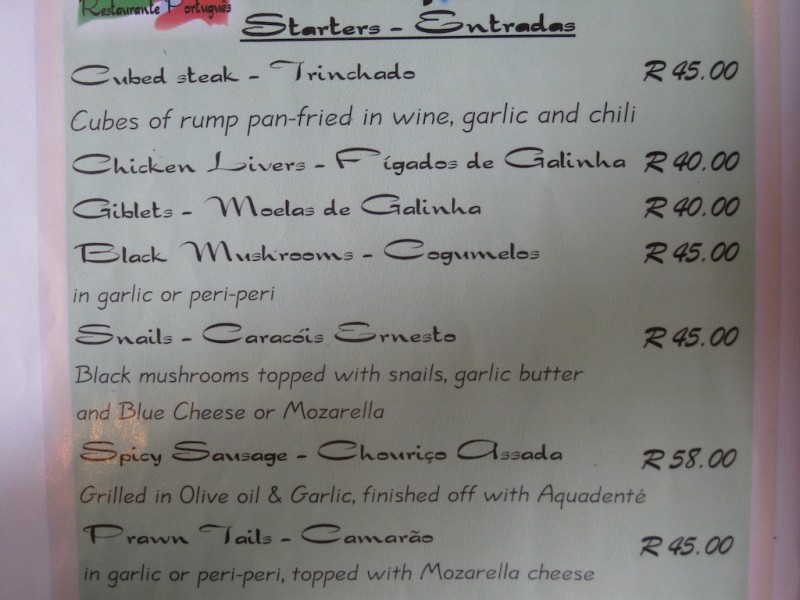 Restaurante Português
Starters - Entradas
Cubed steak - Trinchado R 45.00
Cubes of rump pan-fried in wine, garlic and chili
Chicken Livers - Fígados de Galinha R 40.00
Giblets - Moelas de Galinha R 40.00
Black Mushrooms - Cogumelos R 45.00
in garlic or peri-peri
Snails - Caracóis Ernesto R 45.00
Black mushrooms topped with snails, garlic butter
and Blue Cheese or Mozarella
Spicy Sausage - Chouriço Assada R 58.00
Grilled in Olive oil & Garlic, finished off with Aquadenté
Prawn Tails - Camarão R 45.00
in garlic or peri-peri, topped with Mozarella cheese